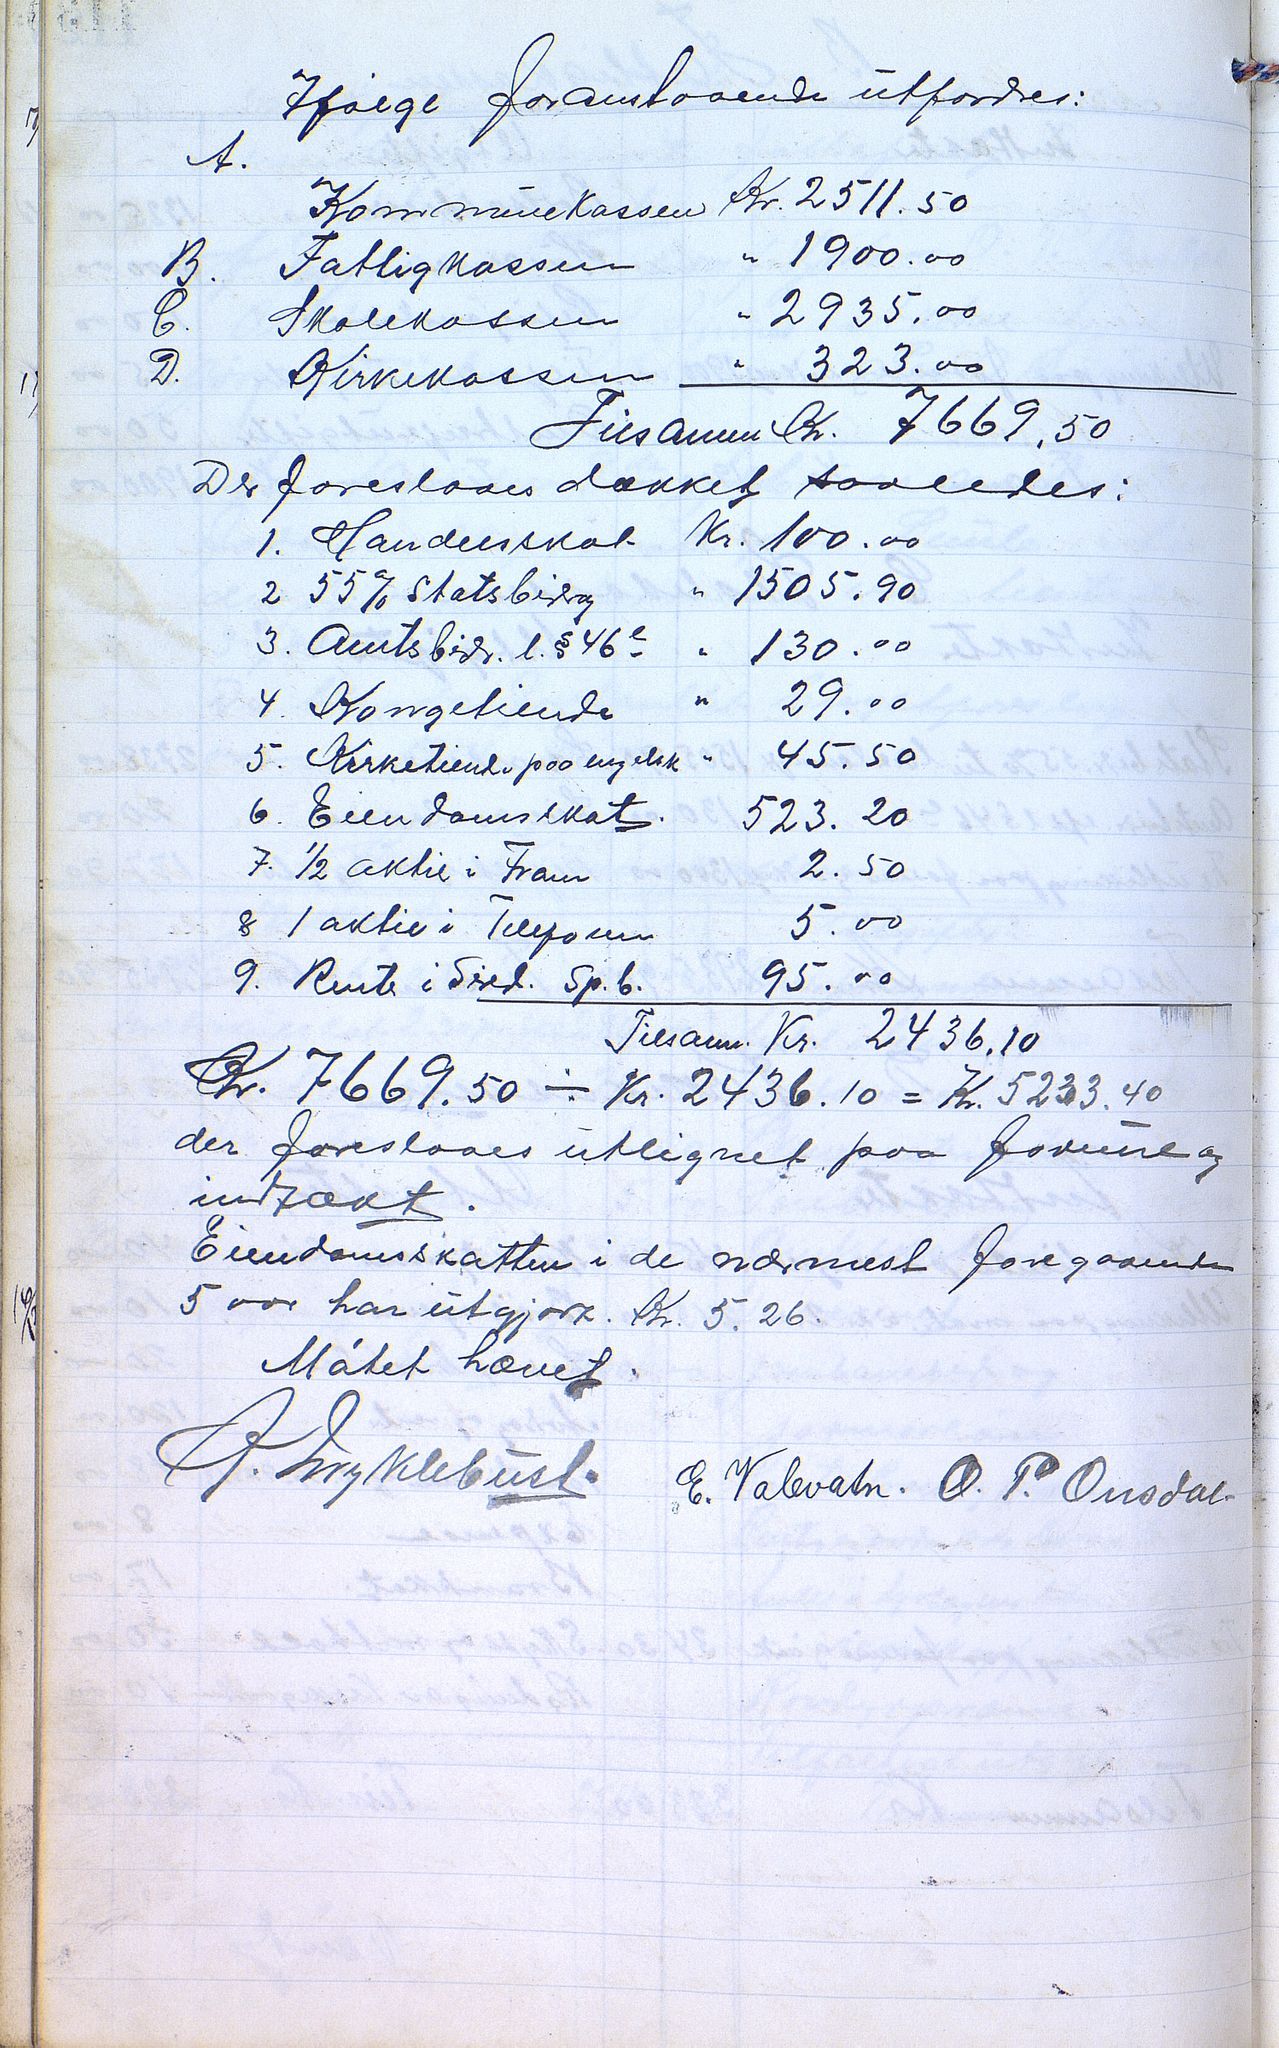 Ifølge foranstaaende utfordres:
A.
Kommunekassen Kr. 2511.50
B. Fattigkassen " 1900.00
C. Skolekassen " 2935.00
D. Kirkekassen " 323.00
Tilsammen Kr. 7669.50
Der foreslaaes dækket saaledes:
1. Handelsskat Kr. 100.00
2 55% Statsbidrag " 1505.90
3. Amtsbidr. l. § 46 e " 130.00
4. Kongetiende " 29.00
5. Kirketiende paa engelsk " 45.50
6. Eiendomsskat. 523.20
7. 1/2 aktie i Fram 2.50
8 1 aktie i Telefonen 5.00
9. Rente i Sired. Sp.b. 95.00
Tilsam. Kr. 2436.10
Kr. 7669.50 ÷ Kr. 2436.10 = Kr. 5233.40
der foreslaaes utlignet paa formue og
indtækt.
Eiendomsskatten i de nærmest foregaaende
5 aar har utgjort. Kr. 5.26.
Mötet hævet.
E. Valevatn. O. P. Ousdal